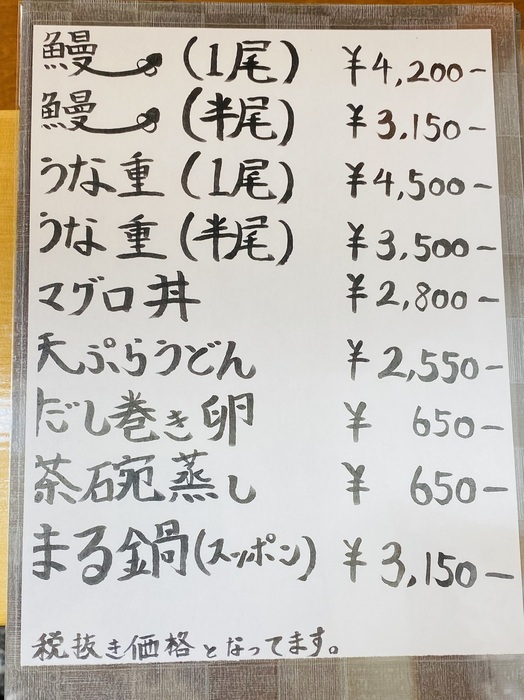 鰻 (1尾) ¥4,200-
鰻 (半尾) ¥3,150-
うな重 (1尾) ¥4,500-
うな重 (半尾) ¥3,500-
マグロ丼 ¥2,800-
天ぷらうどん ¥2,550-
だし巻き卵 ¥650-
茶碗蒸し ¥650-
まる鍋(スッポン) ¥3,150-
税抜き価格となってます。